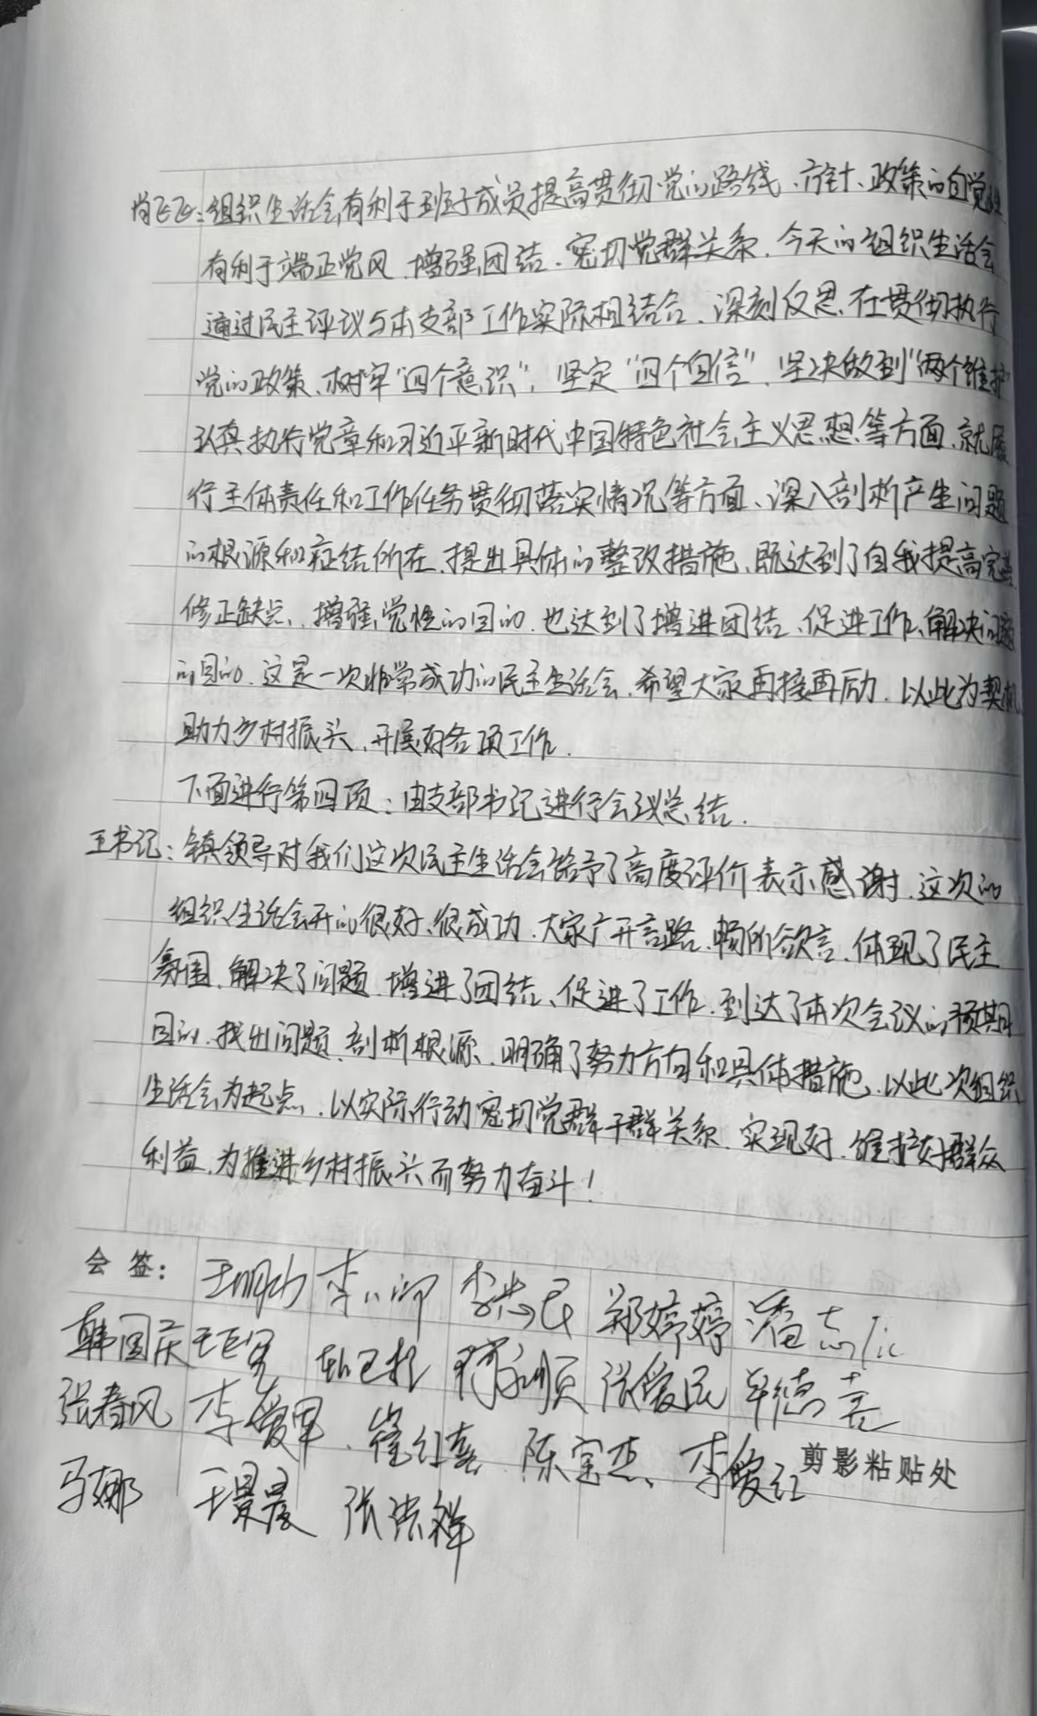 肖飞飞：组织生活会有利于班子成员提高贯彻党的路线、方针、政策的自觉性
有利于端正党风、增强团结、密切党群关系，今天的组织生活会
通过民主评议与本支部工作实际相结合、深刻反思、在贯彻执行
党的政策、树牢“四个意识”，坚定“四个自信”，坚决做到“两个维护
认真执行党章和习近平新时代中国特色社会主义思想等方面，就履
行主体责任和工作任务贯彻落实情况等方面、深入剖析产生问题
的根源和症结所在，提出具体的整改措施，既达到了自我提高完善
修正缺点、增强党性的目的，也达到了增进团结、促进工作、解决问题
的目的，这是一次非常成功的民主生活会，希望大家再接再励，以此为契机
助力乡村振兴，开展好各项工作．
下面进行第四项：由支部书记进行会议总结．
王书记：镇领导对我们这次民主生活会给予了高度评价表示感谢．这次的
组织生活会开的很好、很成功，大家广开言路、畅所欲言，体现了民主
氛围，解决了问题，增进了团结、促进了工作，到达了本次会议的预期
目的，找出问题、剖析根源，明确了努力方向和具体措施，以此次组织
生活会为起点，以实际行动密切党群干群关系，实现好、维护好群众
利益，为推进乡村振兴而努力奋斗！
会 签： 郑婷婷 潘志
韩国庆 张爱民
张春风 李爱军、崔红喜 陈宝杰、李爱红 剪影粘贴处
马娜 王景晨 张洪祥